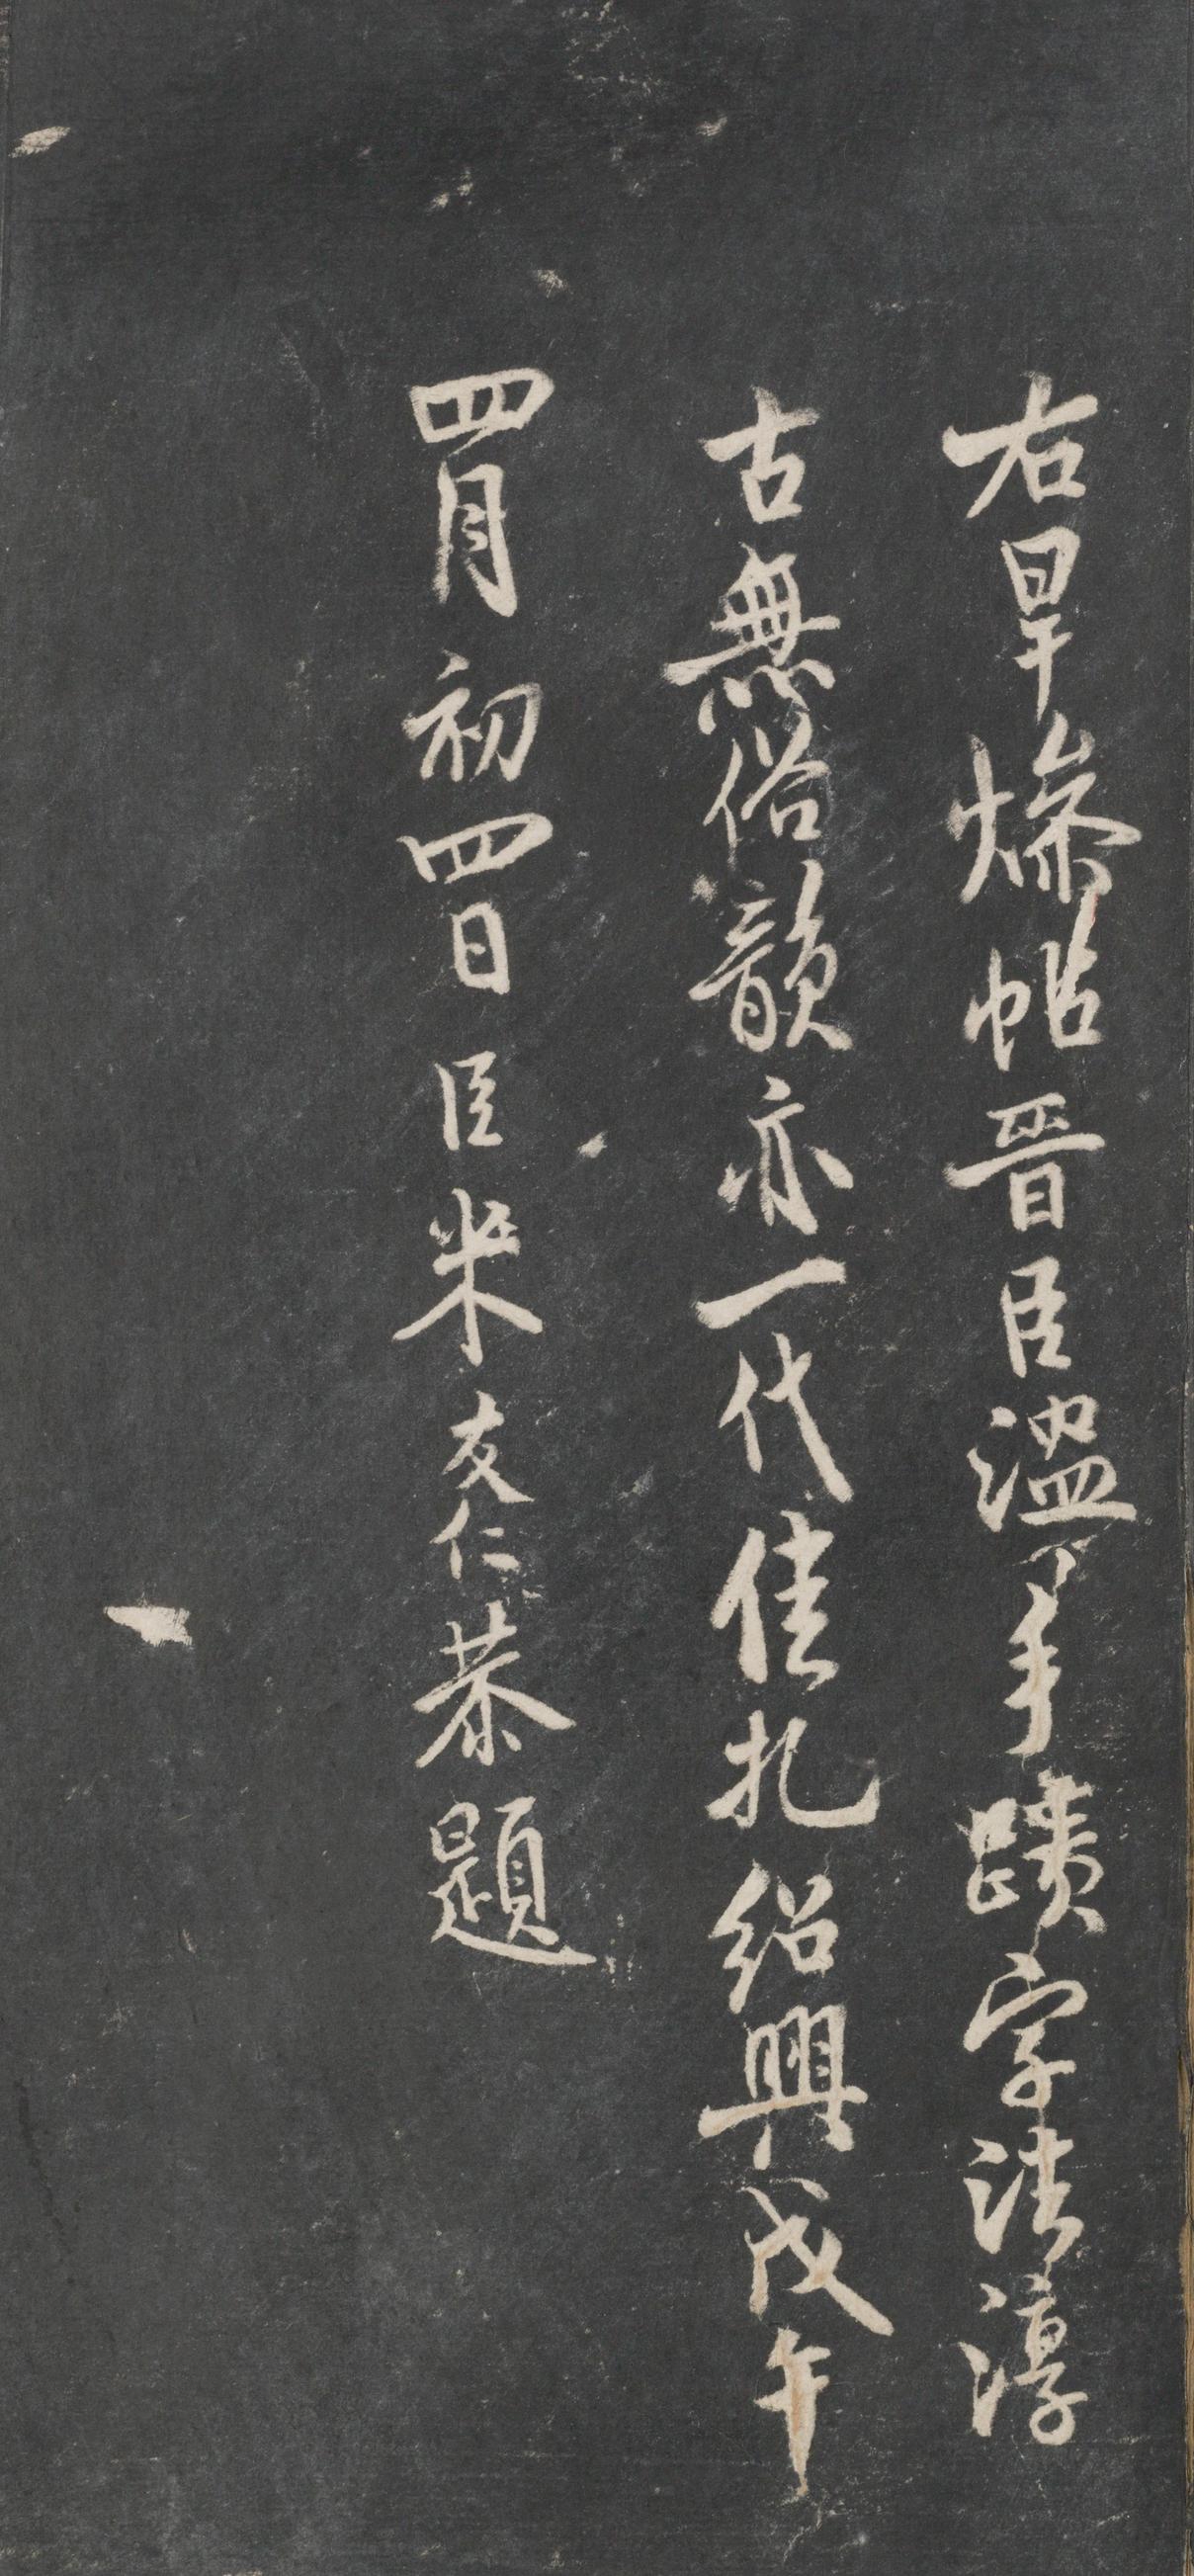 右旱燥帖晋臣溫手蹟字法淳
古無俗韻亦一代佳札紹興戊午
四月初四日臣米友仁恭題